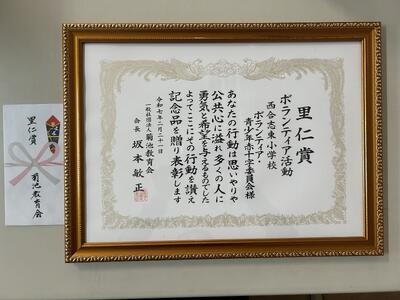 里仁賞
ボランティア活動
西合志東小学校
ボランティア・
青少年赤十字委員会様
あなたの行動は思いやりや
公共心に溢れ多くの人に
勇気と希望を与えるものでした
よってここにその行動を讃え
記念品を贈り表彰します
令和七年二月二十一日
一般社団法人菊池教育会
会長 坂本敏正
里仁賞
菊池教育会